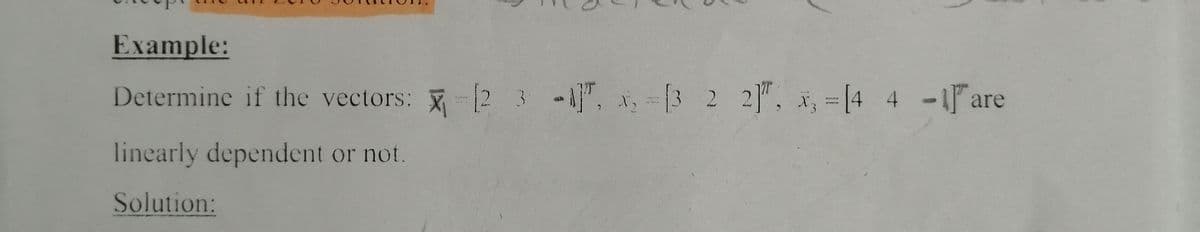 Example:
Determine if the vectors: x̄₁ = [2 3 -1]ᵀ, x̄₂ = [3 2 2]ᵀ, x̄₃ = [4 4 -1]ᵀ are
linearly dependent or not.
Solution: